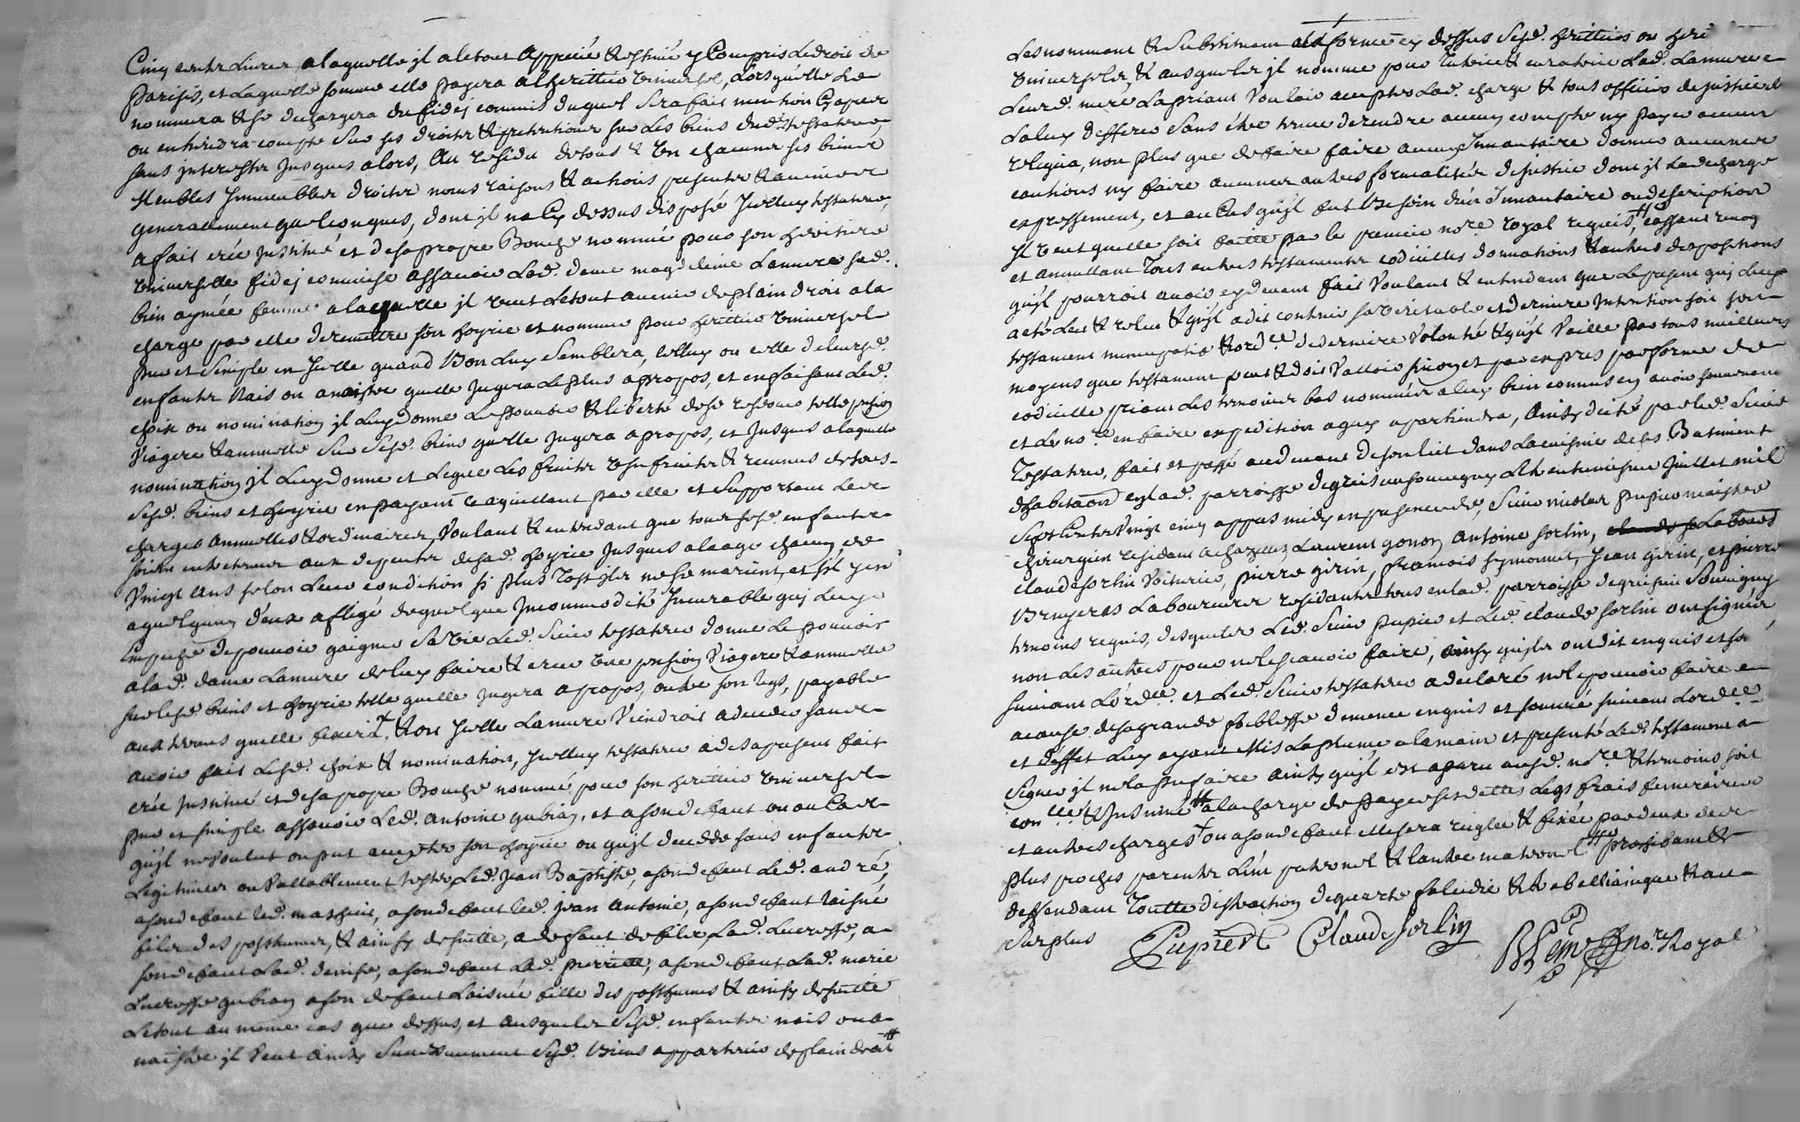 Cinq cents Livres a laquelle jl a letout Apprecié & estimé y Compris Ledroit de
parisis, et Laquelle somme elle payera alheritier vniversel, Lorsquelle le
nommera & se dechargera dufidej commis duquel sera fait mention Cyapres
ou entiendra compte sur ses droits & pretentions sur Les biens dud. testateur,
sans jnterests jusques alors, Au residu detous & vn chacuns ses biens
Meubles Jmmeubles droits noms raisons & actions presents & avenir
generallement quelconques, dont jl na Cy dessus disposé Jcelluy testateur,
a fait crée jnstitué et desapropre Bouche nommé pour son heritiere
vniverselle fidej commise assavoir Lad. dame magdeleine Lamure sad.
bien aymée femme a laquelle jl veut letout avenir deplain droit ala
charge par elle deremettre son hoyrie et nommer pour heritier vniversel
pur et simple en jcelle quand Bon Luy Semblera, celluy ou celle deleursd.
enfants Nais ou anaistre quelle jugera Leplus apropos, et enfaisant Led.
choix ou nomination jl Luy donne Le pouvoir & liberté dese reserver telle pension
viagere & annuelle sur sesd. biens quelle jugera apropos, et jusques alaquelle
nomination jl Luy donne et Legue Les fruits vsufruits & revenus detous
sesd. biens et hoyrie en payant & aquittant par elle et supportant les
charges annuelles & ordinaires, voulant & entendant que tous sesd. enfants
soient entretenus aux depents desad. hoyrie jusques alaage chacun de
vingt ans selon Leur condition si plus tost jls nese marient, et sil yen
aquelquun deux afligé dequelque jncommodité jncurable qui Luy
Empeche depouvoir gaigner sa vie Led. sieur testateur donne Le pouvoir
alad. dame Lamure deluy faire & creer vne pension viagere & annuelle
sur lesd. biens et hoyrie telle quelle jugera apropos, outre son legs, payable
aux termes quelle fixera & ou jcelle Lamure viendroit adeceder sans
avoir fait Lesd. choix & nomination, jcelluy testateur a desapresent fait
crée jnstitué et desapropre Bouche nommé pour son heritier vniversel
pur et simple assavoir Led. antoine gubian, et asondefaut ou au Cas
quil nevoulut ou put accepter son hoyrie ou quil decede sans enfants
Legitimes ou vallablement tester Led. Jean Baptiste, asondefaut Led. andré,
asondefaut led. mathieu, asondefaut led. jean antoine, asondefaut laisné
fils des posthumes, & ainsy desuitte, adefaut defils Lad. Lucresse, a
sondefaut Lad. denise, asondefaut Lad. pierrette, asondefaut Lad. marie
Lucresse gubian ason defaut Laisnée fille des posthumes & ainsy desuitte
Letout au meme cas que dessus, et ausquels sesd. enfants nais oua
naistre jl veut ainsy sesd. Biens appartenir deplain droit
Les nommant & substituant en forme cy dessus sesd. heritiers ou heri
vniversels, & ausquels jl nomme pour tutrice & curatrice Lad. Lamure
Leurd. mere La priant vouloir accepter Lad. charge & tous officiers dejustice de
La luy defferer sans etre tenue derendre aucun compte ny payer aucun
reliqua, non plus que defaire faire aucun jnvantaire donner aucunes
cautions ny faire aucunes autres formalités dejustice dont jl Ladecharge
expressement, et au Cas quil fut Besoin dun jnvantaire ou description
Jl veut quelle soit faitte par le premier nore royal requis, cassant revoq
et annullant tous autres testaments codicilles donnations & autres dispositions
quil pourroit avoir cydevant fait voulant & entendant que Lepresent qui Luy a
été Leu & releu & quil adit contenir sa veritable et derniere jntention soit son
testament nuncupatif & ordre de derniere volonté & quil vaille par tous meilleurs
moyens que testament peut & doit valloir sinon et par exprès par forme de
codicille priant Les temoins bas nommés aluy bien connus en avoir souvenance
et Le nore en faire expedition aquy apartiendra, Ainsy dicté par led. Sieur
testateur, fait et passé au devant de son lict dans Lacuisine de ses Batiments
dhabitaon en lad. parroisse degresieusouvigny Le trentunieme Juillet mil
Sept Cents vingt cinq appres midy en presence de, Sieur nicolas pupier maistre
chirurgien residant achazelles, Laurent gonon, antoine sorlin,
claude sorlin voiturier, pierre girin, francois simonnet, Jean girin, et pierre
Bruyeres Laboureurs residants tous en lad. parroisse degresieu Souvigny
temoins requis, desquels Led. Sieur pupier et Led. claude sorlin ont signé
non Les autres pour nelesçavoir faire, ainsy quils ont dit enquis et so
suivant Lordce et Led. Sieur testateur a declaré ne le pouvoir faire a
acause desagrande foiblesse demeure enquis et sommé suivant Lordce
et deffet Luy ayant Mis Laplume alamain et presenté Led. testament a
signer jl ne la pu faire ainsy quil est aparu ausd. nore & temoins soit
conlle & jnsinué alacharge de payer ses dettes legs frais funeraires
et autres charges ou asondefaut elle sera reglée & fixée par deux de ses
plus proches parents Lun paternel & lautre maternel prohibant &
deffendant Toutte distraction dequarte falcidie & trebellianique & au
surplus
Pupier Claude Sorlin nore Royal